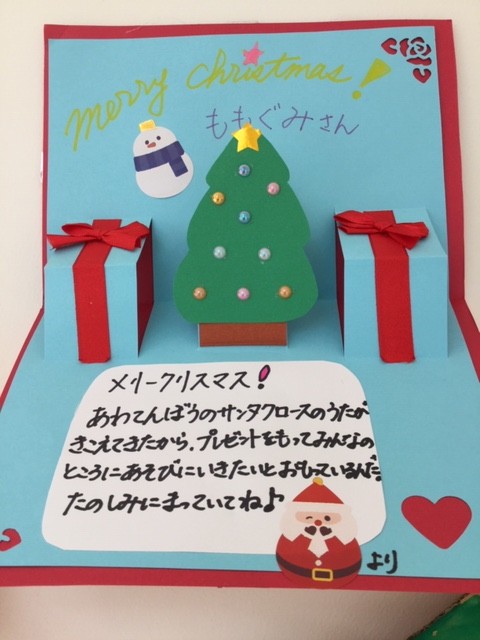 merry christmas!
ももぐみさん
メリークリスマス!
あわてんぼうのサンタクロースのうたが
きこえてきたから、プレゼントをもってみんなの
ところにあそびにいきたいとおもっているんだ。
たのしみにまっていてね♪
より